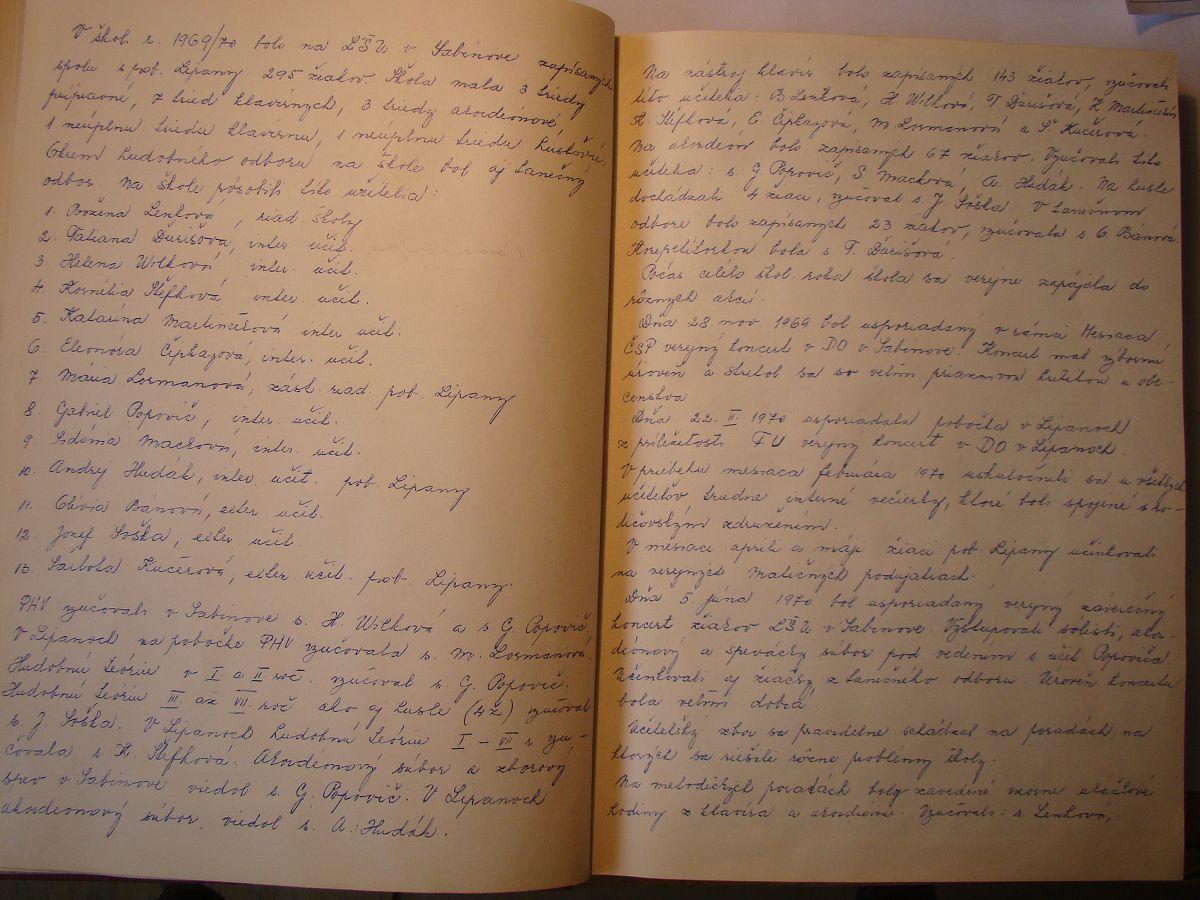 V škol. r. 1969/70 bolo na LŠU v Sabinove zapísaných
spolu s pob. Lipany 295 žiakov. Škola mala 3 triedy
prípravné, 7 tried klavírnych, 3 triedy akordeónové
1 neúplnu triedu klavírnu, 1 neúplnu triedu husľovú.
Okrem hudobného odboru na škole bol aj tanečný
odbor. Na škole pôsobili títo učitelia:
1. Božena Lenková, riad. školy
2. Tatiana Ďurišova, inter. učit.
3 Helena Wilková inter. učit.
4. Kornélia Štefková inter. učit.
5. Katarína Martinčeková inter učit.
6 Eleonóra Čepkazová, inter. učit.
7 Mária Lormanová, zást. riad. pob. Lipany
8 Gabriel Popovič, inter. učit.
9 Sidónia Macková, inter. učit.
10. Andrej Hudák, inter. učit. pob. Lipany
11. Olívia Bánová, exter. učit.
12. Jozef Soška, exter. učit.
13. Šarlota Kučerová, exter. učit. pob. Lipany.
PHV vyučovali v Sabinove s. H. Wilková a s. G. Popovič.
V Lipanoch na pobočke PHV vyučovala s. M. Lormanová.
Hudobnú teóriu v I a II roč. vyučoval s. G. Popovič.
Hudobnú teóriu III. až VII. roč ako aj husle (4ž) vyučoval
s. J. Soška. V Lipanoch hudobnú teóriu I - VII r vyu-
čovala s K. Štefková. Akordeónový súbor a zborový
spev v Sabinove viedol s. G. Popovič. V Lipanoch
akordeónový súbor viedol s. A. Hudák.
Na nástroj klavír bolo zapísaných 143 žiakov, vyučovali
títo učitelia: B Lenková, H Wilková, T. Ďurišova, K. Martinčeková
K. Štefková, E. Čepkazová, M. Lormanová a Š. Kučerova.
Na akordeón bolo zapísaných 67 žiakov. Vyučovali títo
učitelia: s. G Popovič, S. Macková, A. Hudák. Na husle
dochádzali 4 žiaci, vyučoval s. J. Soška. V tanečnom
odbore bolo zapísaných 23 žiakov, vyučovala s O. Bánová.
Korepetítorkou bola s T. Ďurišová.
Počas celého škol. roka škola sa verejne zapájala do
rôznych akcií.
Dňa 28. nov. 1969 bol usporiadaný v rámci Mesiaca
ČSP verejný koncert v DO v Sabinove. Koncert mal výbornú
úroveň a stretol sa so veľmi priaznivou kritikou u obe-
censtva
Dňa 22. II. 1970 usporiadala pobočka v Lipanoch
z príležitosti FU verejný koncert v DO v Lipanoch.
V priebehu mesiaca februára 1970 uskutočnili sa u všetkých
učiteľov triedne interné večierky, ktoré boli spojené s ro-
dičovským združením.
V mesiaci apríli a máji žiaci pob. Lipany účinkovali
na verejných Matičných podujatiach.
Dňa 5. júna 1970 bol usporiadaný verejný záverečný
koncert žiakov LŠU v Sabinove. Vystupovali sólisti, akor-
deónový a spevácky súbor pod vedením s. učit Popoviča.
Účinkovali aj žiačky z tanečného odboru. Úroveň koncertu
bola veľmi dobrá.
Učiteľský zbor sa pravidelne schádzal na poradách, na
ktorých sa riešili rôzne problémy školy.
Na metodických poradách boly zavedené vzorne ukážkové
hodiny z klavíra a akordeónu. Vyučovali: s. Lenková,